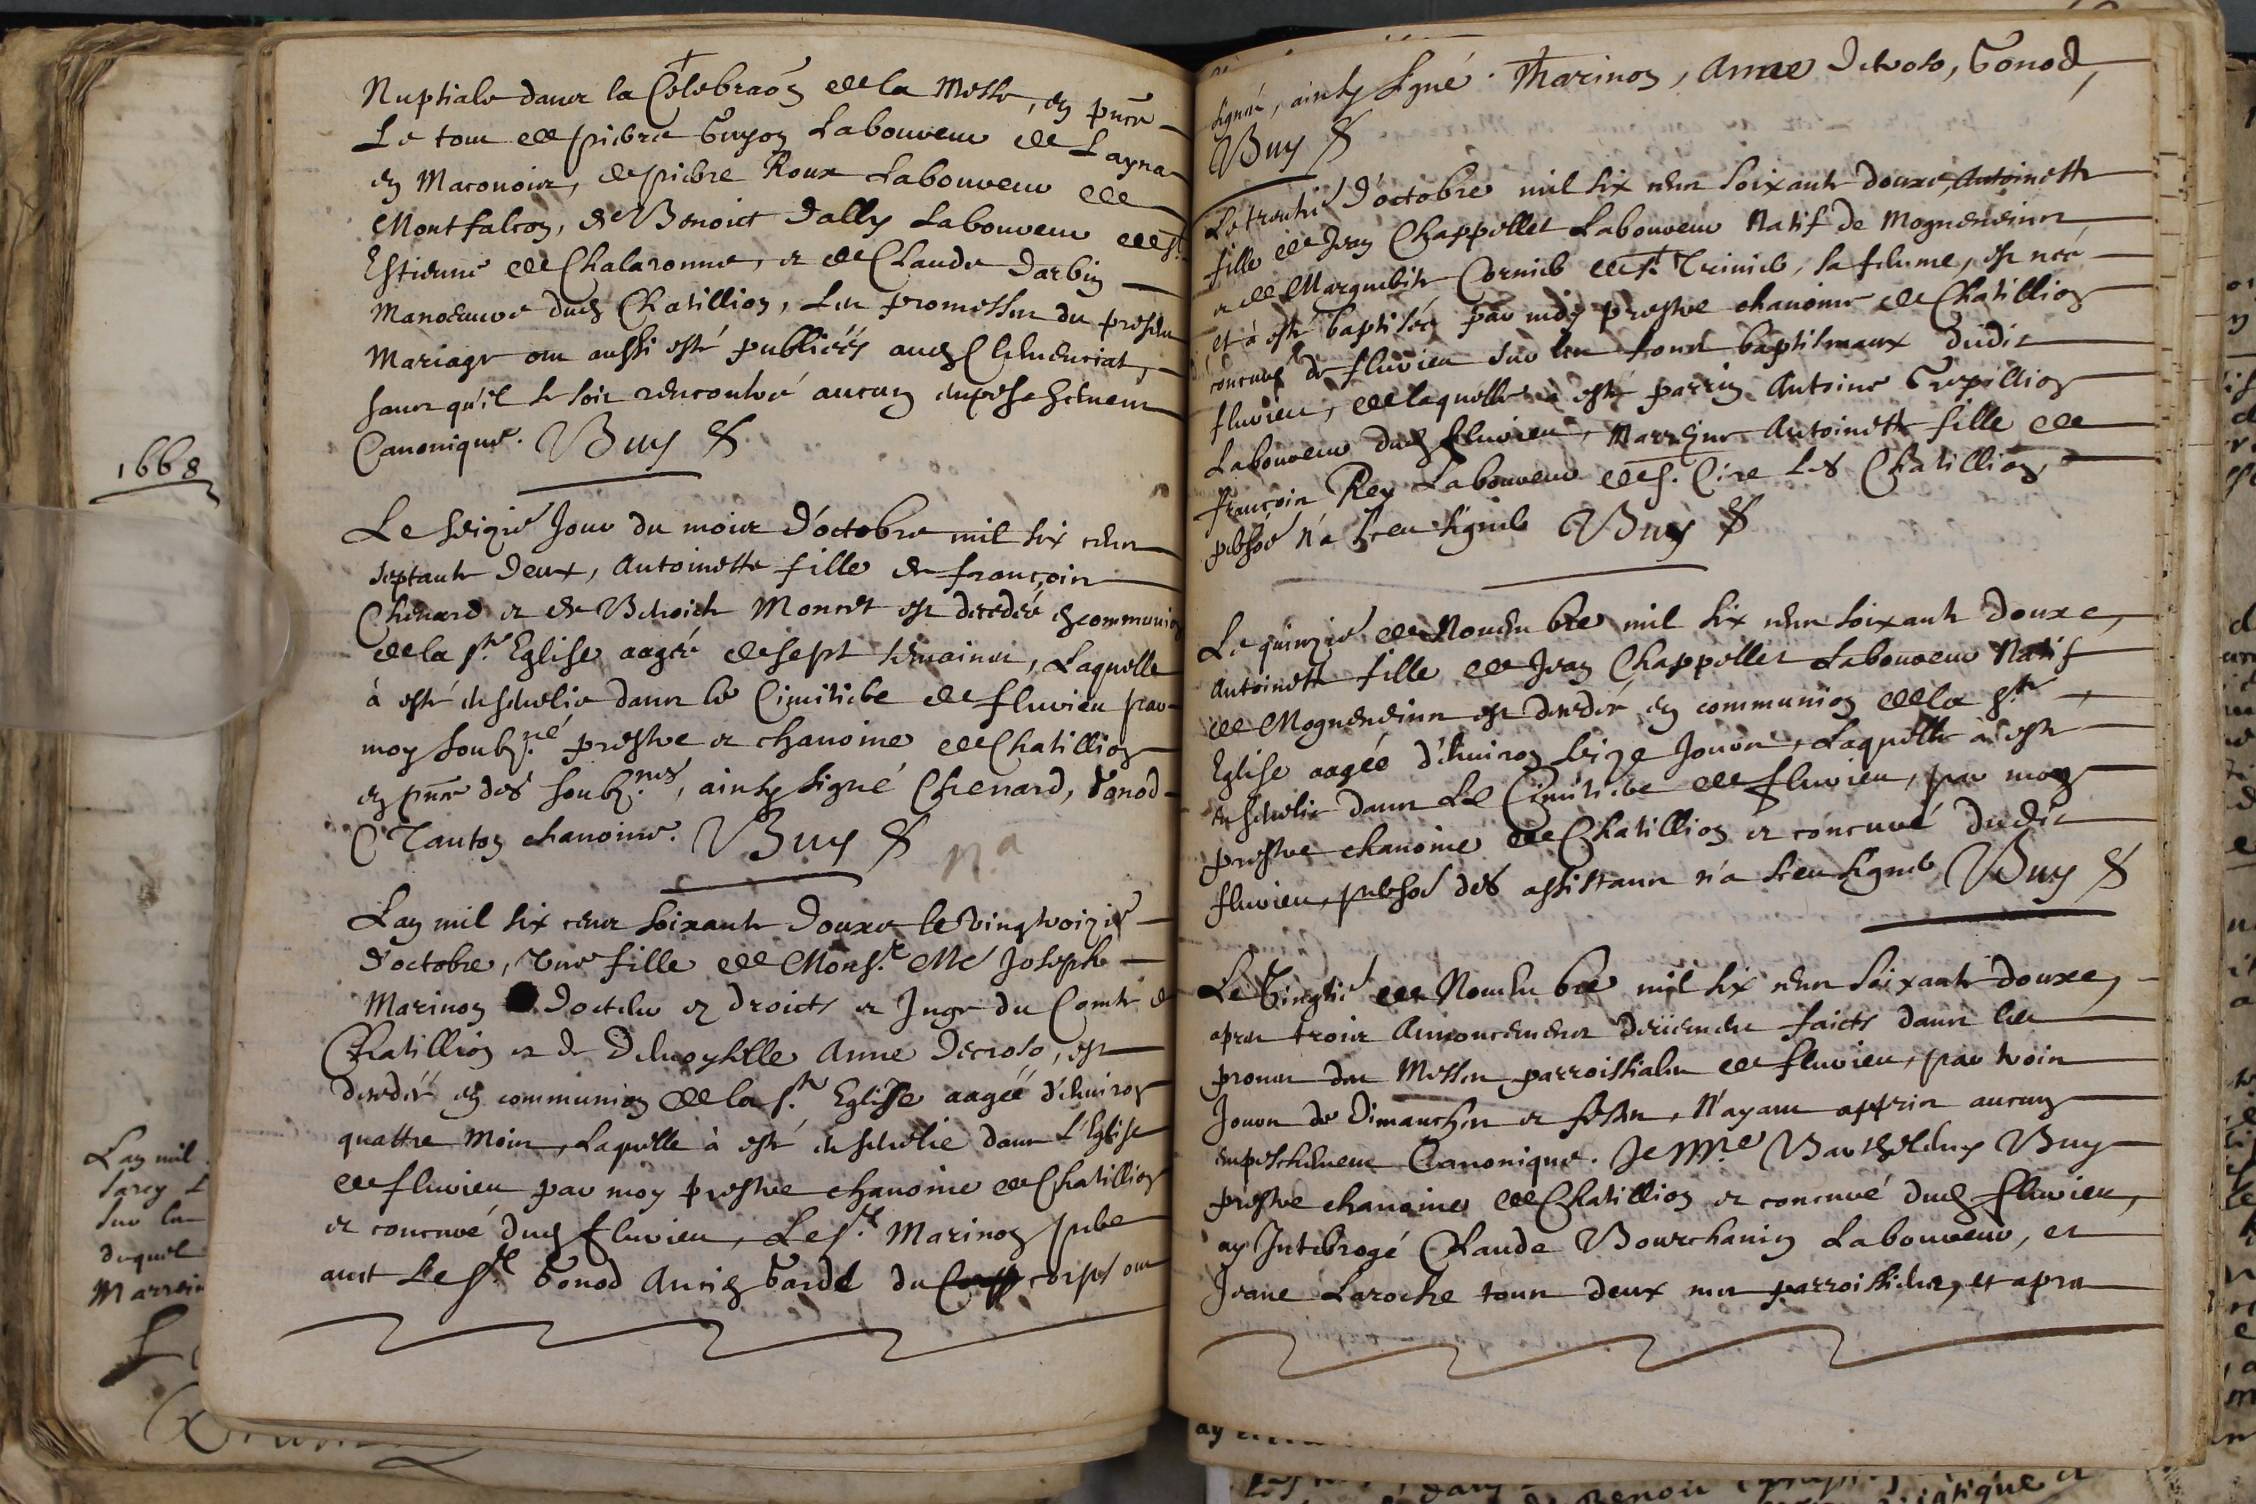 Nuptiale dans la Celebraõn de la Messe, en pñce
Le tout de pierre Guyon Laboureur de Layna
en Maconois, de pierre Roux Laboureur de
Montfalcon, de Benoict Dally Laboureur de St.
Estienne de Chalaronne, et de Claude Darbin
Manoeuvre dud Chatillion, Les promesses du present
Mariage ont aussi esté publiéés aud Clemenciat,
sans qu'il se soit rencontré aucun empeschement
Canonique. Buy
1668
Le seizie Jour du mois d'octobre mil six cens
septante deux, Antoinette fille de françois
Chenard et de Benoiste Moncet est decedeé en communion
de la ste Eglise aageé de sept semaines, Laquelle
à esté enseuelie dans le Cimitiere de fluvieu par
moy soubz.né prestre et chanoine de Chatillion
en pñce des soubz.nes, ainsy signé Chenard, Gonod
C Tanton chanoine. Buy
na
Lan mil six cens soixante douze le vingtroizie
d'octobre, Une fille de Monsr. Me Joseph
Marinon Docteur ez droicts et Juge du Comté de
Chatillion et de Demoyselle Anne Decroso, est
decedeé en communion de la ste Eglise aagéé d'environ
quattre mois, Laquelle à esté enseuelie dans L'Eglise
de fluvieu par moy prestre chanoine de Chatillion
et concuré dud fluvieu, Le sr. Marinon pere
avec Le sr. Gonod Ancien Garde du corps ont
signé, ainsy signé. Marinon, Anne Decroso, Gonod,
Buy
Le trentie d'octobre mil six cens soixante douze, Antoinette
fille de Jean Chappellet Laboureur Natif de Mogneneins
et de Marguerite Cornier de st. Trivier, sa femme, est néé
et à esté baptiséé par moy prestre chanoine de Chatillion
concuré de fluvieu sur les fonds baptismaux dudit
fluvieu, de laquelle à esté parrin Antoine Grepillion
Laboureur dud fluvieu, Marreine Antoinette fille de
françois Rey Laboureur de s. Cire Les Chatillion,
persoe n'a sceu signer Buy
Le quinzie de Nouembre mil six cens soixante douze,
Antoinette fille de Jean Chappellet Laboureur Natif
de Mogneneins est decedeé en communion de la ste
Eglise aagéé d'environ seize Jours, Laquelle à esté
enseuelie dans Le Cimitiere de fluvieu, par moy
prestre chanoine de Chatillion et concuré dudit
fluvieu, persoe des assistans n'a sceu signer Buy
Le Vingtie de Nouembre mil six cens soixante douze,
apres trois Annoncemens deüement faicts dans les
prones des Messes parroissiales de fluvieu, par trois
Jours de Dimanches et festes, N'ayant appris aucun
empeschement Canonique. Je Mre Barthelemy Buy
prestre chanoine de Chatillion et concuré dud fluvieu,
ay Interrogé Claude Bourchanin Laboureur, et
Jeane Laroche tous deux mes parroissiens, et apres
Lan mil